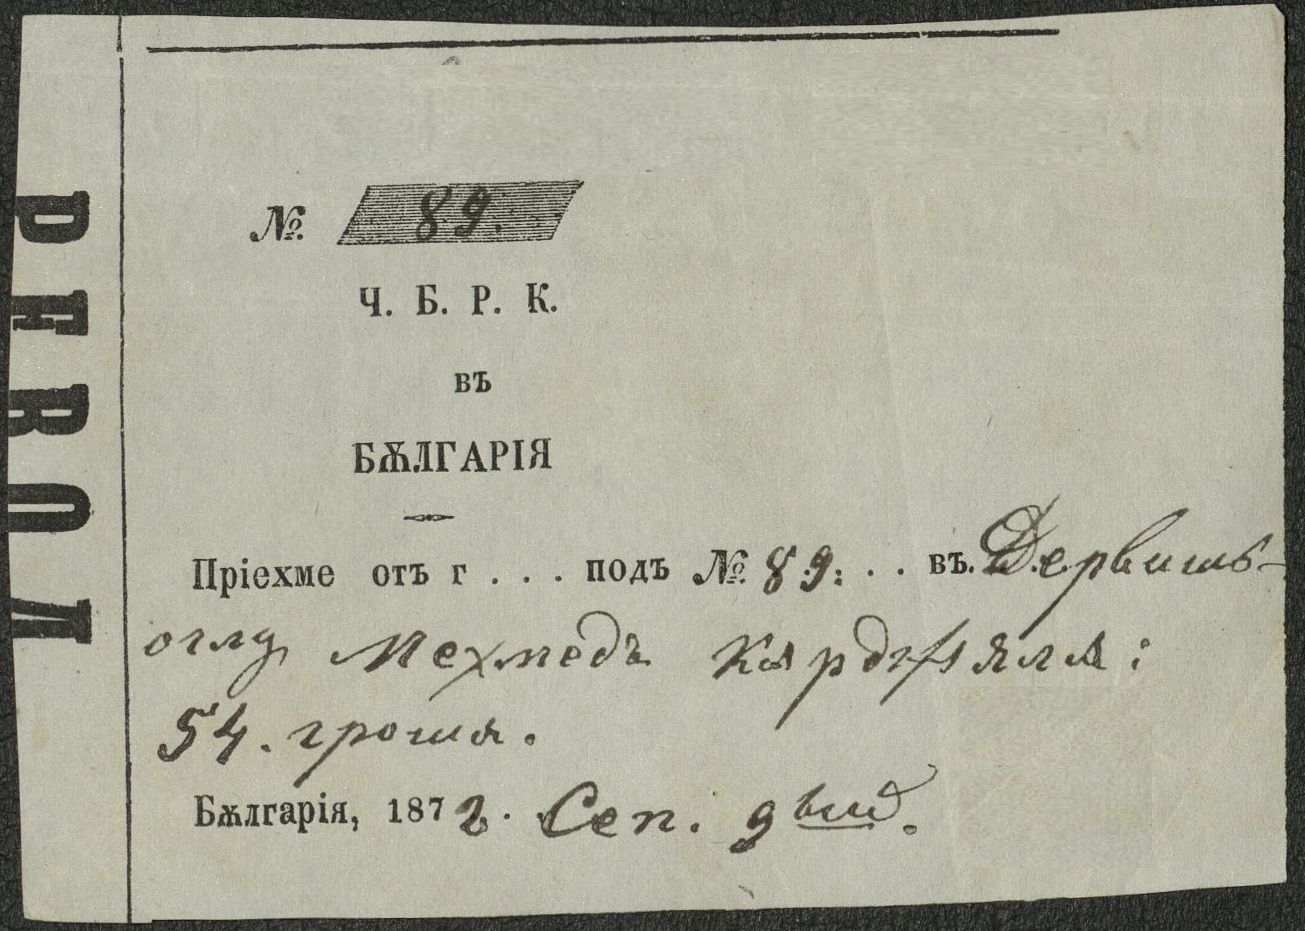 № 89.
Ч. Б. Р. К.
въ
БѪЛГАРІЯ
Пріехме отъ г . . . подъ № 89. . . въ. Дервишь-
оглу Мехмедъ Кярджяля:
54. грошя.
Бѫлгарія, 1872. Сеп. 9вий.